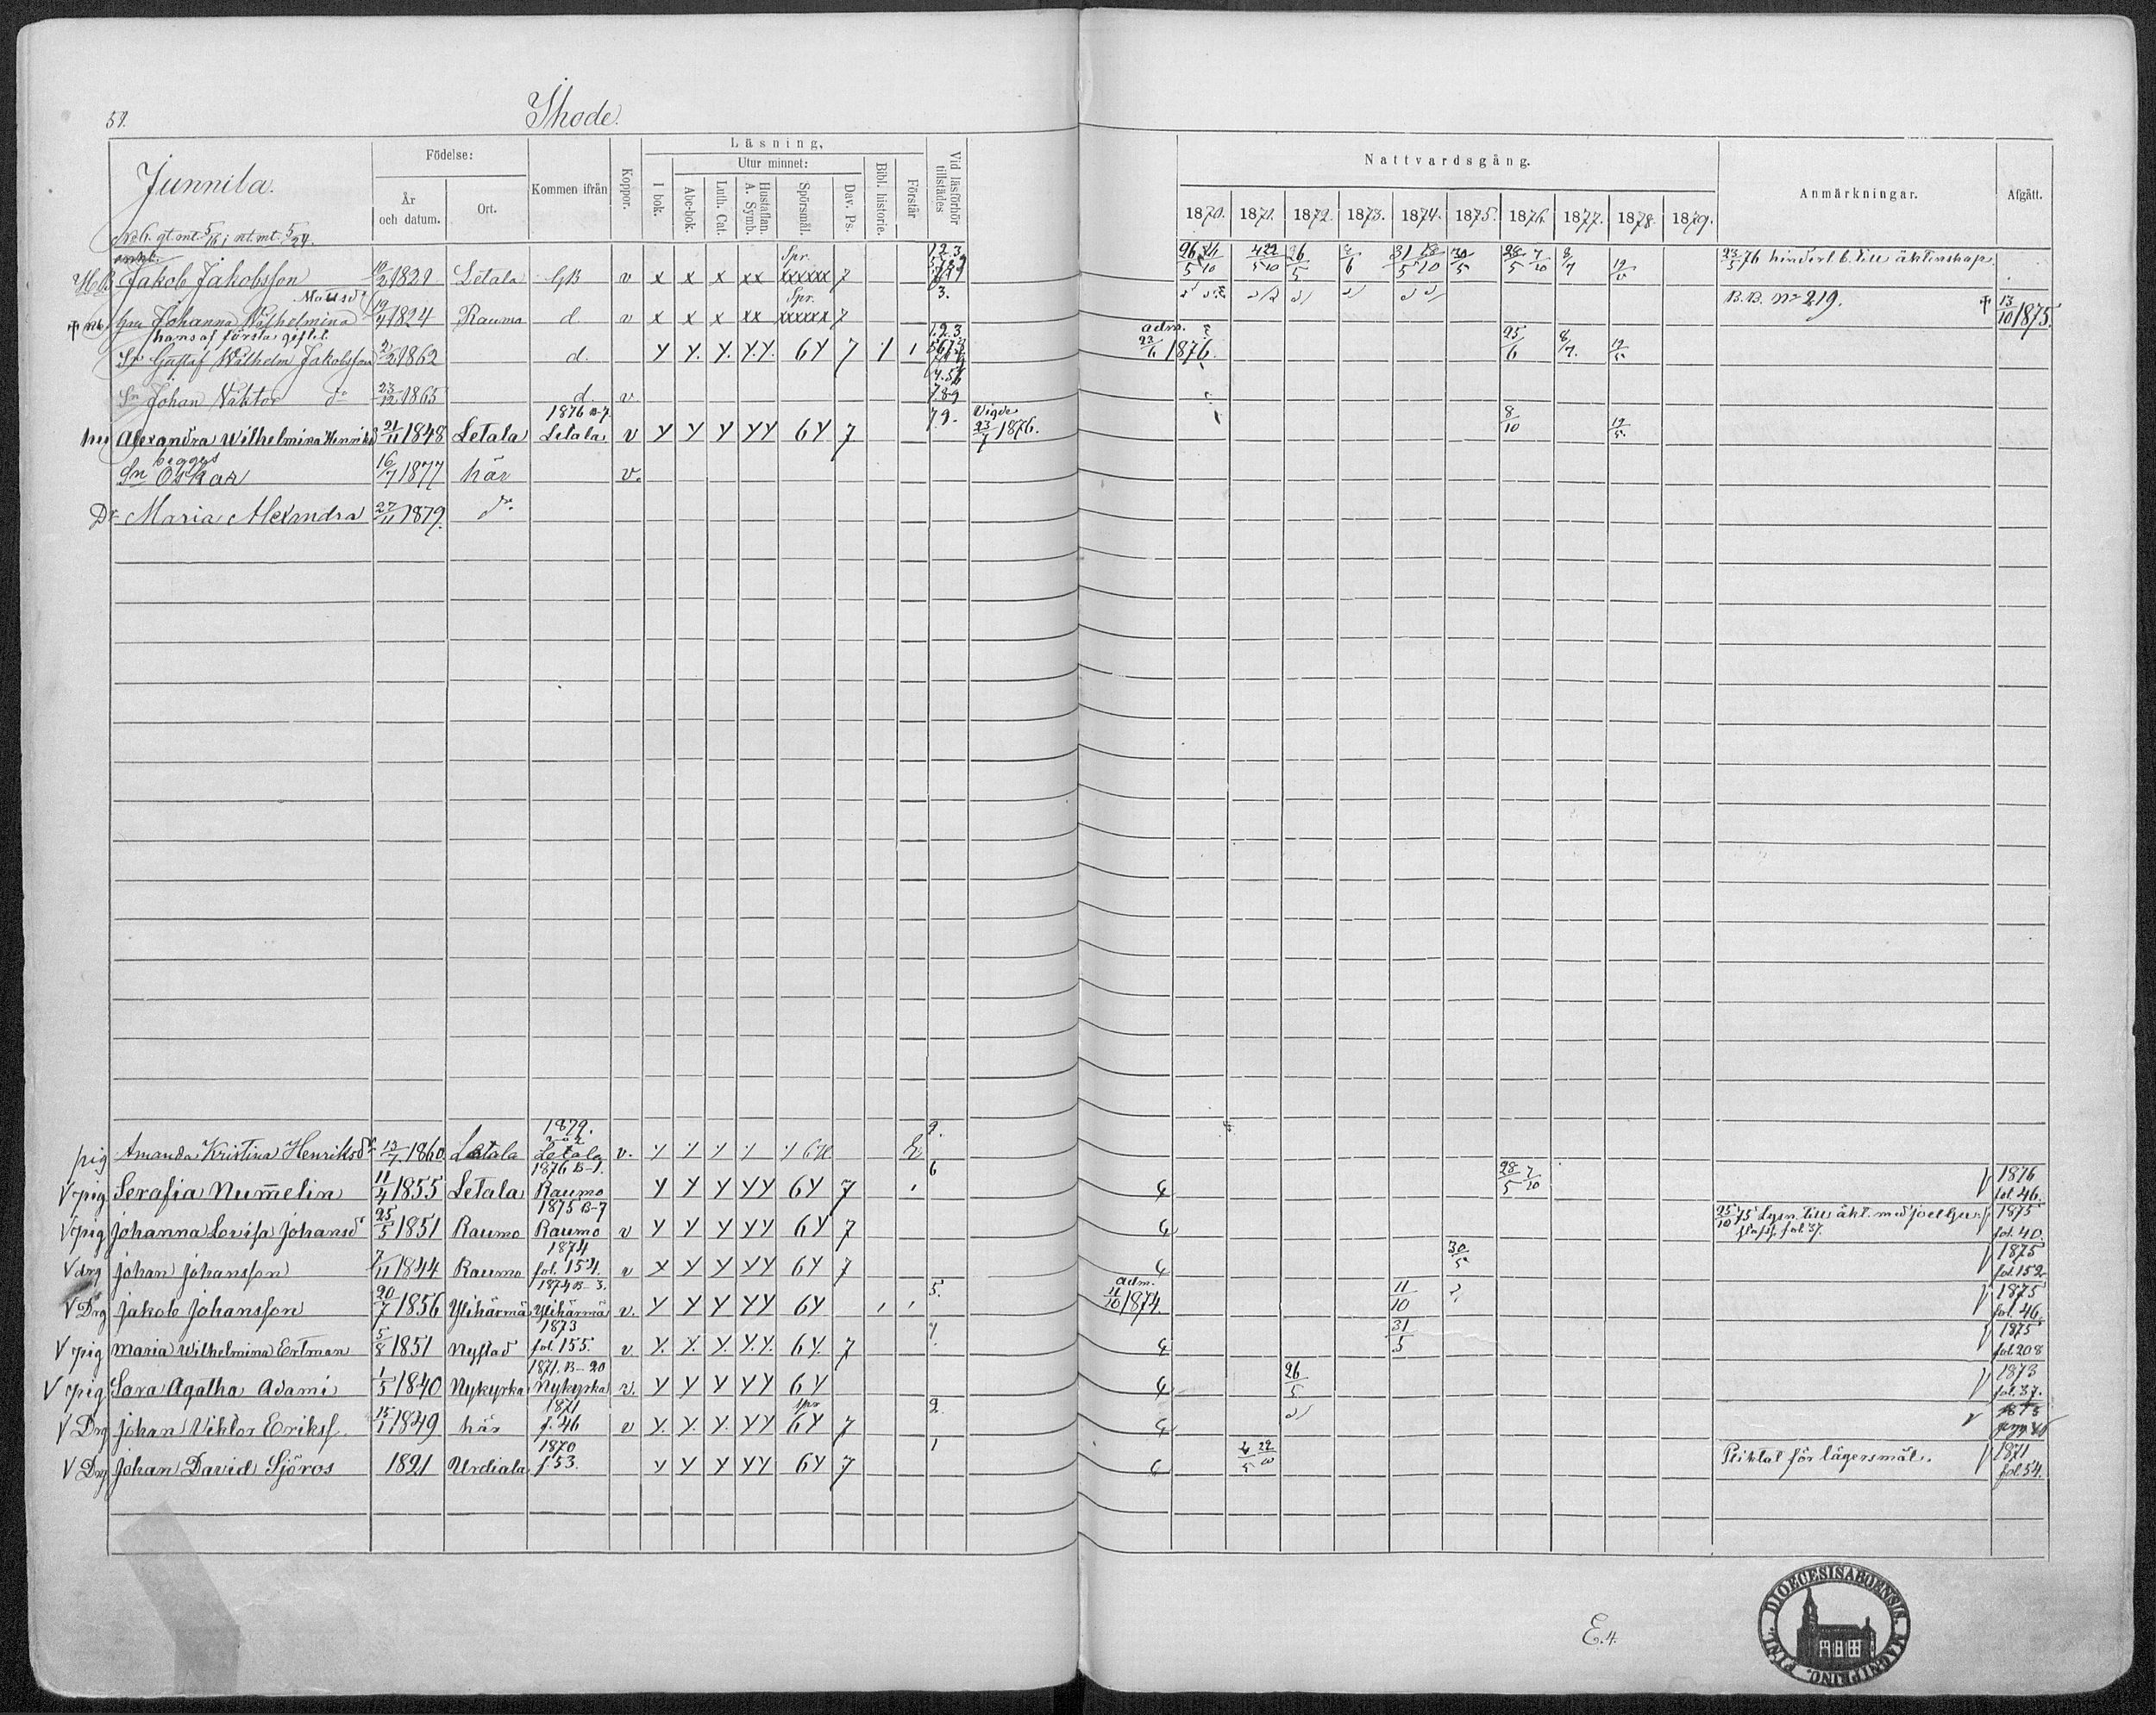 51.
Ihode.
Junnila.
Födelse:
År och datum.
Ort.
Kommen ifrån
Koppor.
Läsning,
I bok.
Utur minnet:
Abc-bok.
Luth. Cat.
Hustaflan. A. Symb.
Spörsmål.
Dav. Ps.
Bibl. historie.
Förstår
Vid läsförhör tillstädes
Nattvardsgång.
1870. 1871. 1872. 1873. 1874. 1875. 1876. 1877. 1878. 1879.
Anmärkningar.
Afgått.
enkl. Spr. 1.2.3
Jakob Jakobsson 1821 Letala GB v x x x xx xxxxxx 7 23/5 76 hinderl. b. till äktenskap
Mattsd. Spr. 3.
Johanna Wilhelmina 19/4 1824 Rauma d. v x x x xx xxxxxx 7 B.B. No 219. 13/10 1875.
hans af första giftet 1.2.3 adm.
Sn Gustaf Wilhelm Jakobsson 1862 d. Y Y. Y. Y.Y. 6Y 7 1 1 23/6 1876. 25/6 8/7. 19/5
Sn Johan Viktor do 23/12 1865 d. v 7.8.9
1876 B-7 7.9. Vigde
hu Alexandra Wilhelmina Henriksd 21/11 1848 Letala Letala v Y Y Y YY 6Y 7 23/7 1876. 8/10 19/5.
begges
Sn Oskar 16/7 1877 här v.
Dr Maria Alexandra 27/11 1879. do
1879. 9.
pig Amanda Kristina Henriksdr 13/7 1860. Letala Letala v.
1876 B-1. 6 1876
V pig Serafia Nummelin 11/4 1855 Letala Raumo Y Y Y YY 6Y 7 28/5 7/10 fol. 46.
1875 B-7 25/10 75 Lysn. till äkt. med Joel 1875
V pig Johanna Lovisa Johansd 25/5 1851 Raumo Raumo v Y Y Y YY 6Y 7 fol. 37. fol. 40.
1874 1875
V drg Johan Johansson 7/11 1844 Raumo fol. 154. v Y Y Y YY 6Y 7 30/5 fol. 152
1874 B-3. 5. adm. 1875
V Drg Jakob Johansson 20/7 1856 Ylihärmä Ylihärmä v. Y Y Y YY 6Y 11/10 1874. 11/10 fol. 46.
1873 1875
V pig Maria Wilhelmina Ertman 5/8 1851 Nystad fol. 155. v. Y. Y. Y. Y.Y. 6Y. 7 31/5 fol. 208
1871. B-20 1873
V pig Sara Agatha Adami 1/5 1840 Nykyrka Nykyrka v. Y Y Y YY 6Y 26/5 fol. 37.
1871 spr 2. 1873
V Drg Johan Viktor Eriksf. 15/1 1849 här f. 46 v Y. Y. Y. YY 6Y 7
1870 1 1871
V Drg Johan David Sjöros 1821 Urdiala f. 53. Y Y Y YY 6Y 7 Pliktat för lägersmål. fol. 54.
E.4.
DIOECESIS ABOENSIS. MAGNI PRINC. FINL.